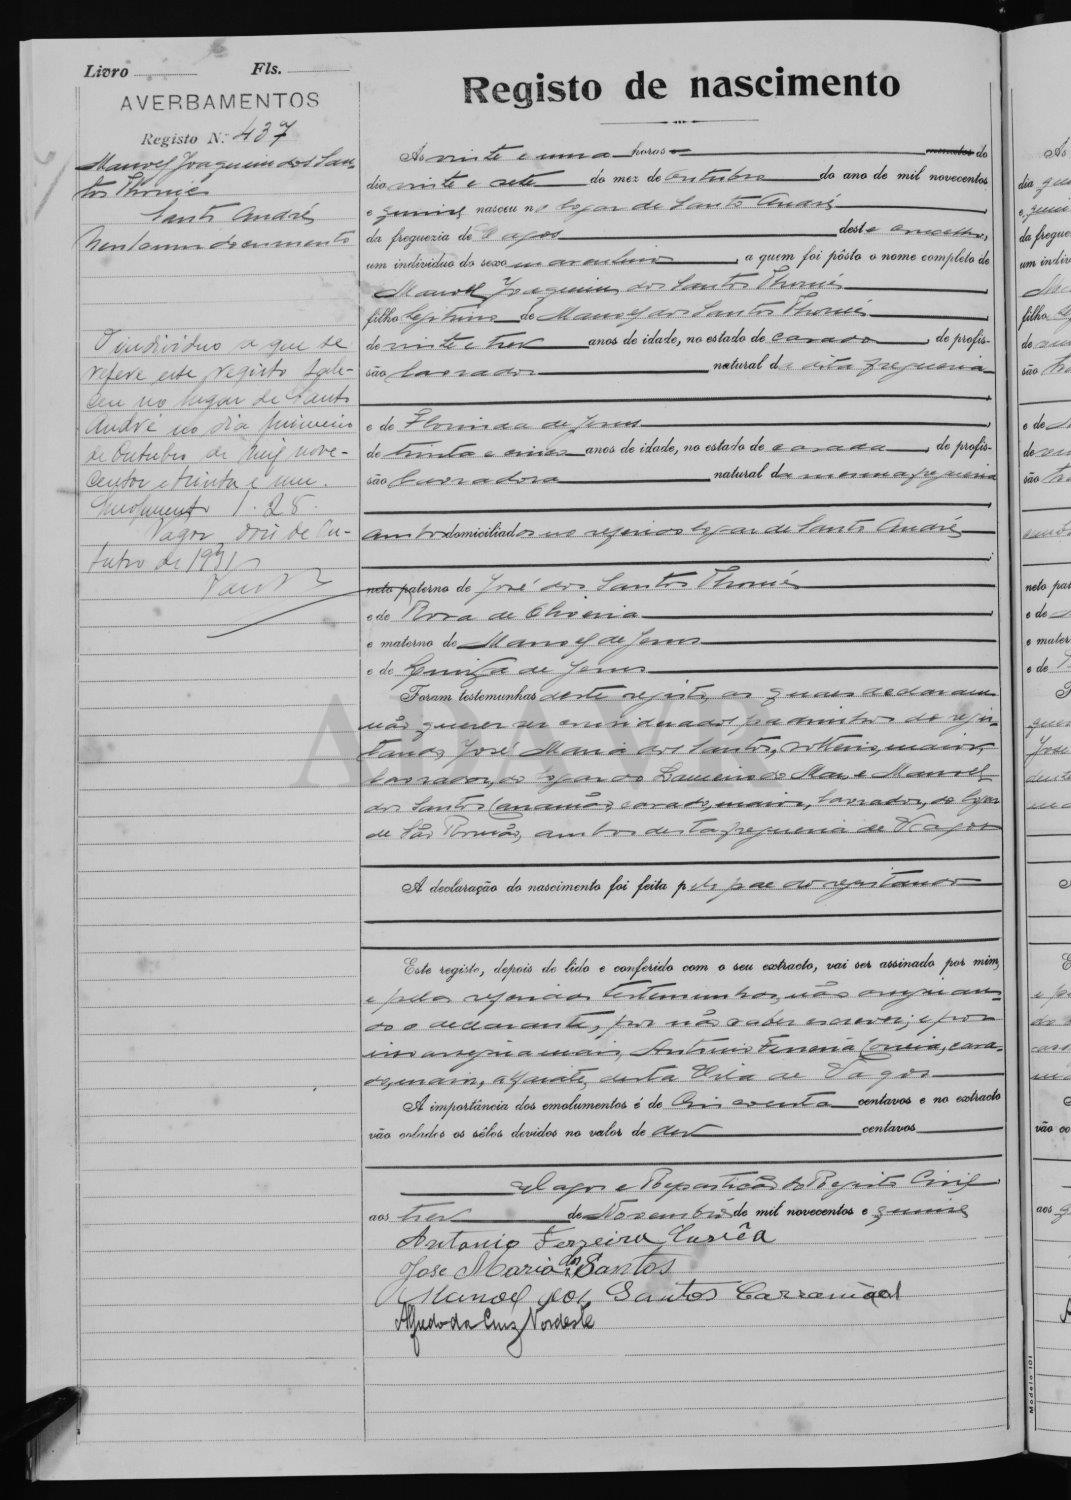 Livro Fls.
AVERBAMENTOS
Registo N.º 437
Manoel Joaquim dos San-
tos Thomé
Santo André
Nenhum documento
O individuo a que se
refere este registo fale-
ceu no lugar de Santo
André no dia primeiro
de Outubro de mil nove-
centos e trinta e um.
1.25.
Vagos, dois de Ou-
tubro de 1931
Registo de nascimento
Ás vinte e uma horas minutos do
dia vinte e sete do mez de Outubro do ano de mil novecentos
e quinze nasceu no logar de Santo André
da freguezia de Vagos deste concelho,
um individuo do sexo masculino, a quem foi pôsto o nome completo de
Manoel Joaquim dos Santos Thomé
filho legitimo de Manoel dos Santos Thomé
de vinte e tres anos de idade, no estado de casado, de profis-
são lavrador natural da dita freguezia
e de Florinda de Jesus
de trinta e cinco anos de idade, no estado de casada, de profis-
são lavradora natural da mesma freguezia
ambos domiciliados no referido logar de Santo André
neto paterno de José dos Santos Thomé
e de Rosa de Oliveira
e materno de Manoel de Jesus
e de Luiza de Jesus
Foram testemunhas deste registo, as quaes declararam
não querer ser considerados padrinhos do regis-
tando, José Maria dos Santos, solteiro, maior,
lavrador, do logar do Lameiro do Mar, e Manoel
dos Santos Carramão, casado, maior, lavrador, do logar
de São Romão, ambos desta freguezia de Vagos
A declaração do nascimento foi feita pelo pae do registando
Este registo, depois de lido e conferido com o seu extracto, vai ser assinado por mim,
e pelas referidas testemunhas, não assignan-
do o declarante, por não saber escrever; e por
isso assigna mais, Antonio Ferreira Correia, casa-
do, maior, alfaiate, desta Vila de Vagos
A importância dos emolumentos é de Cincoenta centavos e no extracto
vão colados os sêlos devidos no valor de dez centavos
Vagos e Repartição do Registo Civil
aos tres de Novembro de mil novecentos e quinze
Antonio Ferreira Curiêa
Jose Maria dos Santos
Manoel dos Santos Carramão
Alfredo da Cruz Nordeste
ADAVR
Modelo 101